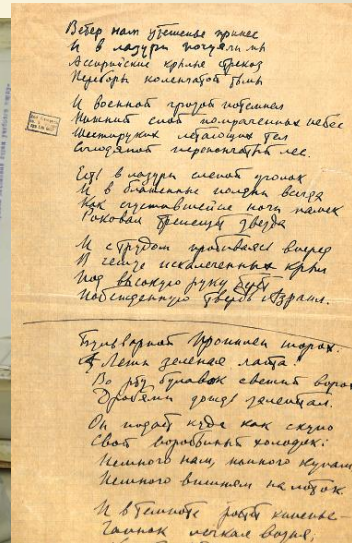 Ветер нам утешенье принес
И в лазури почуяли мы
Ассирийские крылья стрекоз
Переборы коленчатой тьмы
И военной грозой потемнел
Нижний слой помраченных небес
Шестируких летающих тел
Слюдяной перепончатый лес.
Есть в лазури слепой уголок
И в блаженные полдни всегда
Как сгустившейся ночи намек
Роковая трепещет звезда
И с трудом пробиваясь вперед
В чешуе искалеченных крыл
Под высокую руку берет
Побежденную твердь Азраил.
Бульварной Пропилеи шорох.
Лети зеленая лапта!
Во рту булавок свежий ворох
Дробями дождь залепетал.
Он подает куда как скупо
Свой воробьиный холодок:
Немного нам, немного купам
Немного вишням на лоток
И в темноте растет кипенье—
Чаинок легкая возня,